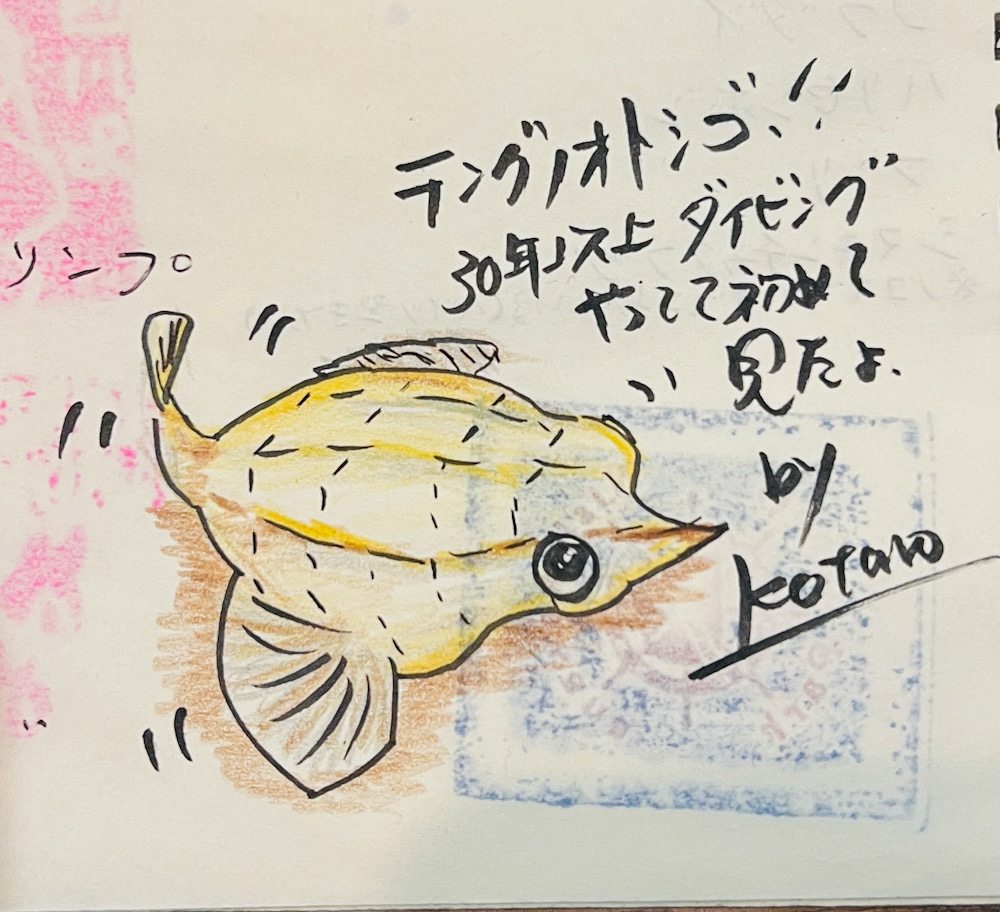 テングノオトシゴ、!!
30年以上 ダイビング
やってて初めて
見たよ.
by
kotaro
リンプ。